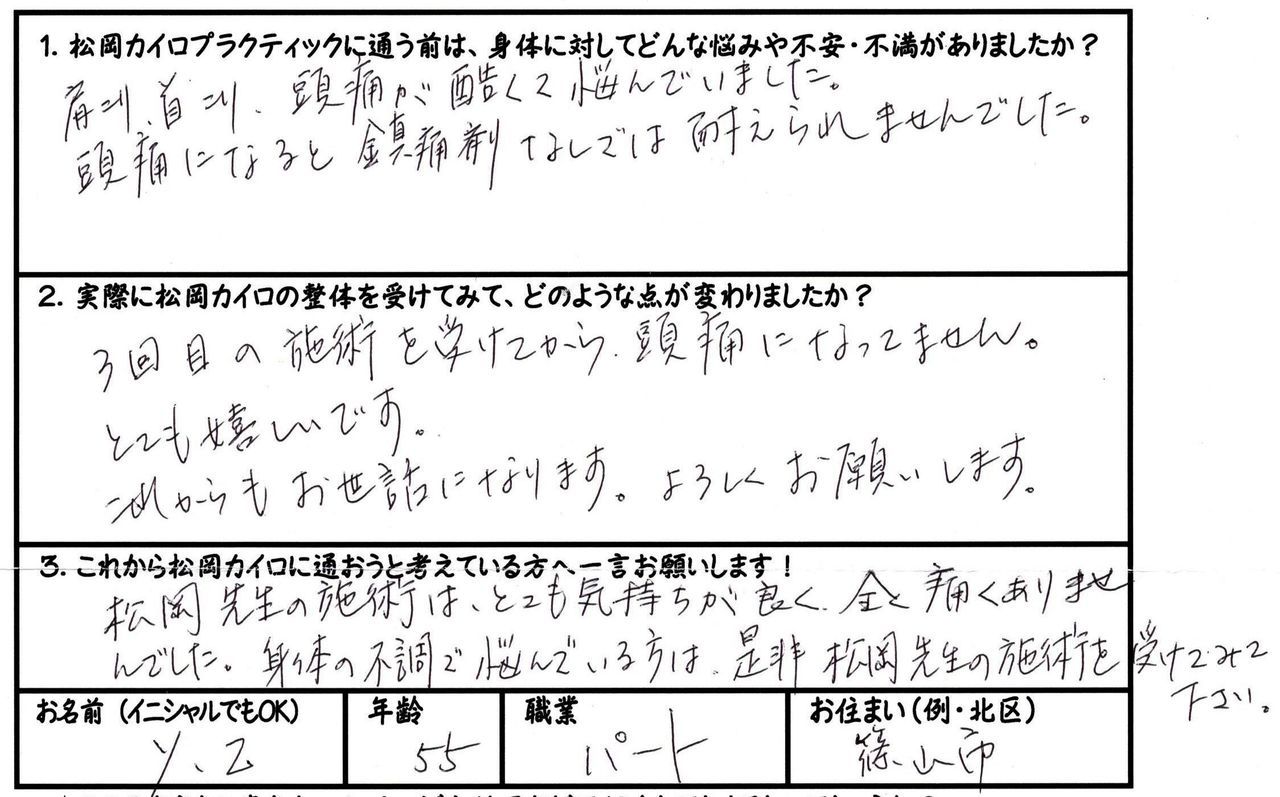 1. 松岡カイロプラクティックに通う前は、身体に対してどんな悩みや不安・不満がありましたか？
肩こり、首こり、頭痛が酷くて悩んでいました。
頭痛になると鎮痛剤なしでは耐えられませんでした。
2. 実際に松岡カイロの整体を受けてみて、どのような点が変わりましたか？
3回目の施術を受けてから、頭痛になってません。
とても嬉しいです。
これからもお世話になります。よろしくお願いします。
3. これから松岡カイロに通おうと考えている方へ一言お願いします！
松岡先生の施術は、とても気持ちが良く、全く痛くありませ
んでした。身体の不調で悩んでいる方は、是非松岡先生の施術を受けてみて
下さい。
お名前（イニシャルでもOK） 年齢 職業 お住まい（例・北区）
Y、Z 55 パート 篠山市